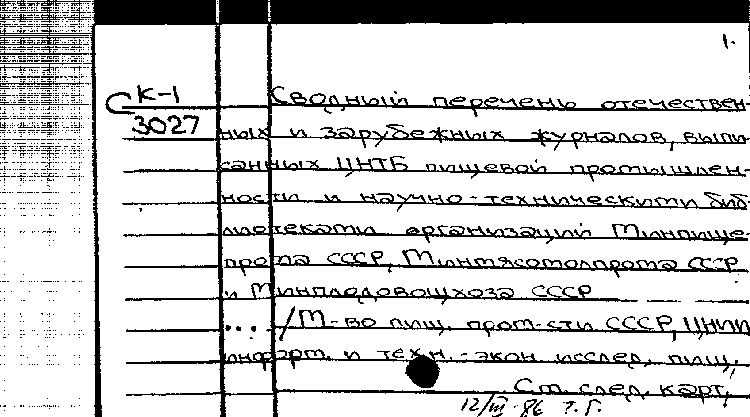 1.
К-1
3027
Сводный перечень отечествен-
ных и зарубежных журналов, выпи-
санных ЦНТБ пищевой промышлен-
ности и научно-техническими биб-
лиотеками организаций Минпище-
прома СССР, Минмясомолпрома СССР
и Минплодоовощхоза СССР
... /М-во пищ. пром-сти СССР, ЦНИИ
информ. и техн.-экон. исслед. пищ.
См. след. карт.
12/III-86 г.